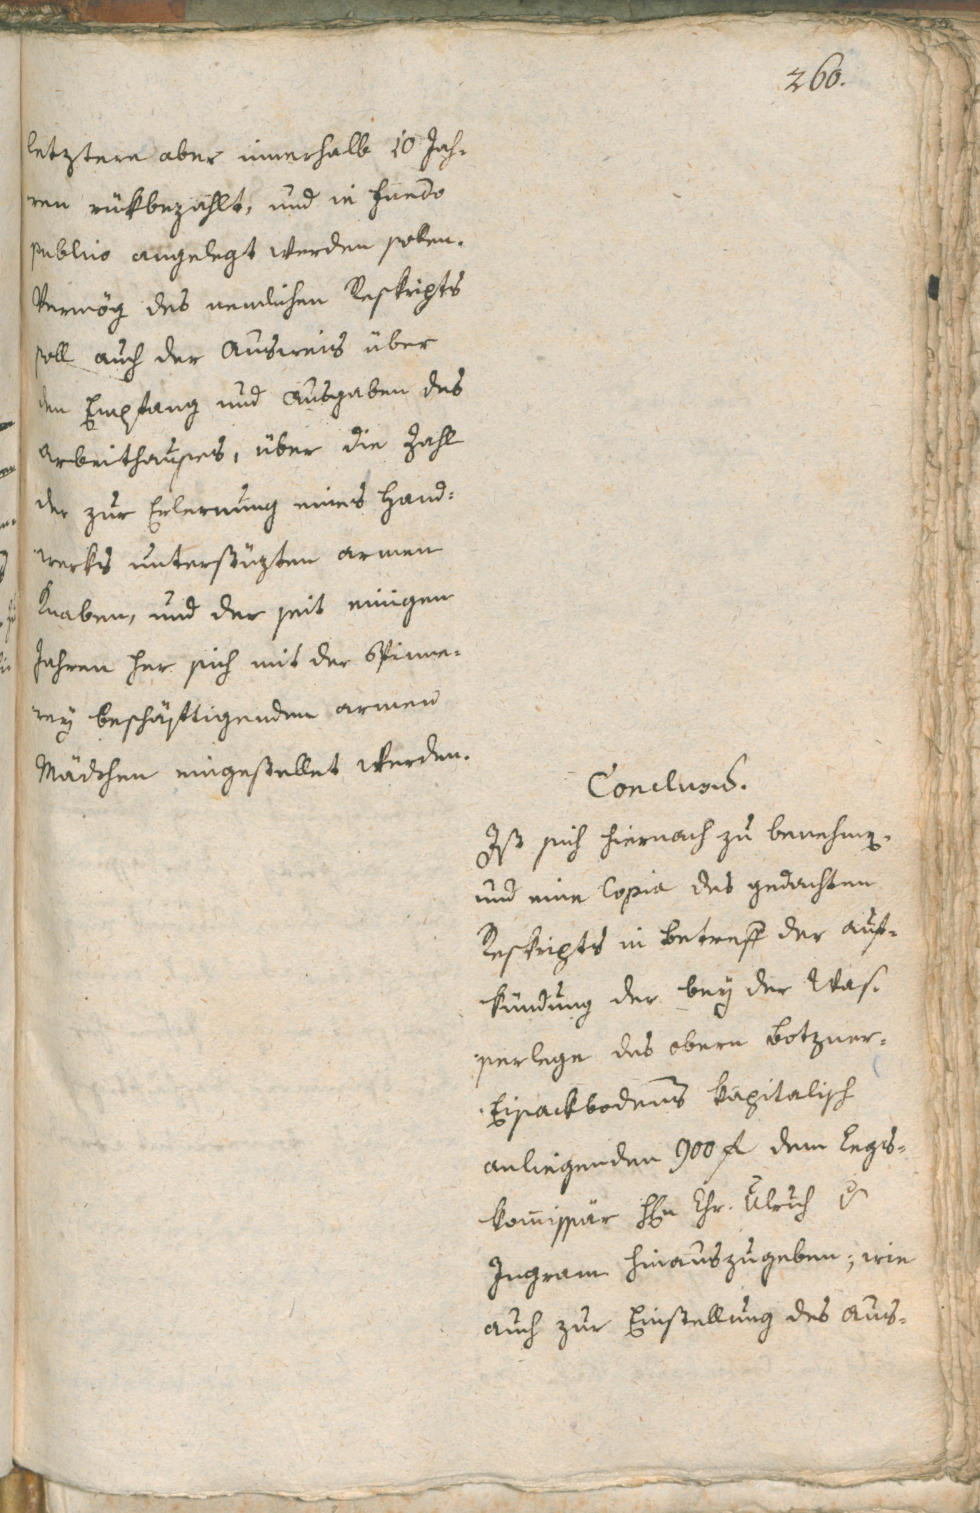 260.
letztere aber innerhalb 10 Jah-
ren rükbezahlt, und in fundo
publico angelegt werden sollen.
Vermög des nemlichen Reskripts
soll auch der Ausweis über
den Empfang und Ausgaben des
Arbeithauses, über die Zahl
der zur Erlernung eines Hand-
werks unterstüzten armen
Knaben, und der seit einigen
Jahren her sich mit der Spinne-
rey beschäftigenden armen
Mädchen eingestellet werden.
Conclusis.
Ist sich hiernach zu benehmen,
und eine Copia des gedachten
Reskripts in Betreff der auf-
kündung der bey der Was-
serlege des obern Botzner-
Eisackbodens kapitalisch
anliegenden 900 fl dem Legs-
kom̄issär Hrn Chr. Ulrich v
Ingram hinauszugeben; wie
auch zur Einstellung des Aus-